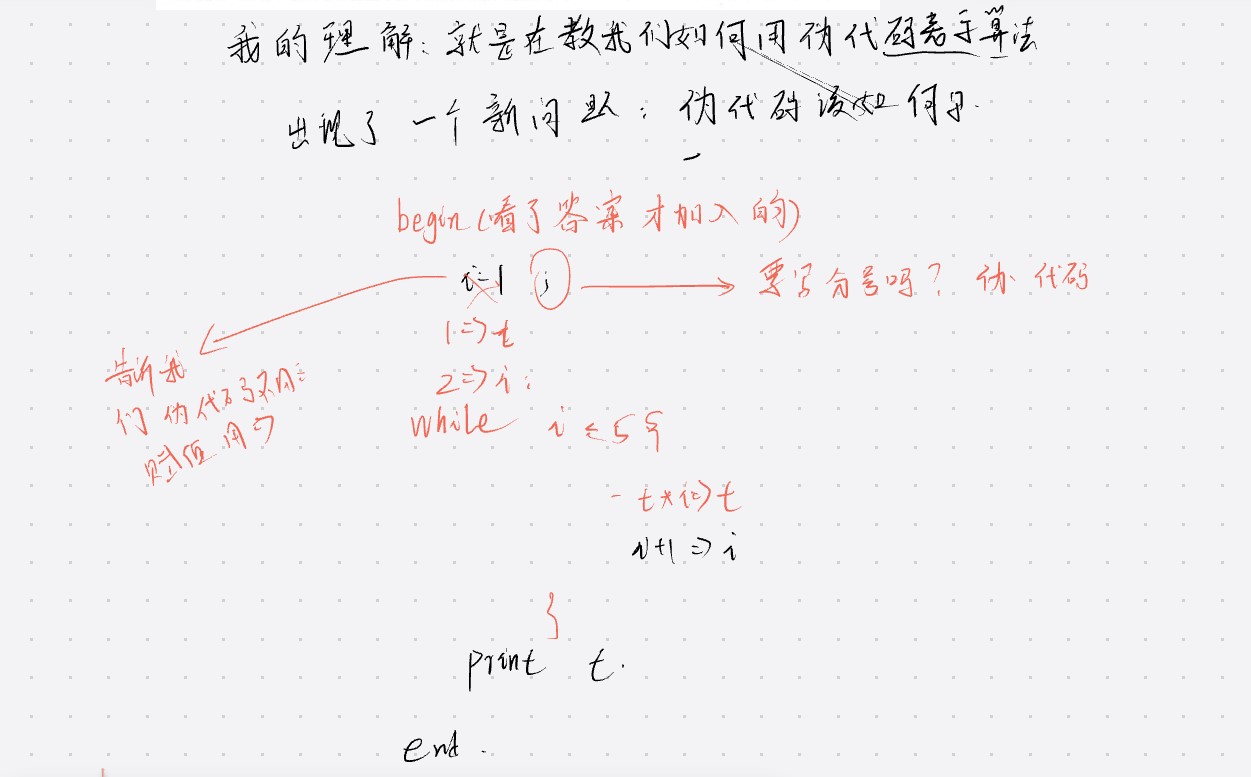 我的理解：就是在教我们如何用伪代码表示算法
出现了一个新问题：伪代码该如何写.
begin(看了答案才加入的)
i=1 ;
要写分号吗？伪代码
1=>t
告诉我
们伪代码不用=
赋值用=>
2=>i;
while i≤5 {
- t*i=>t
i+1=>i
}
print t.
end.